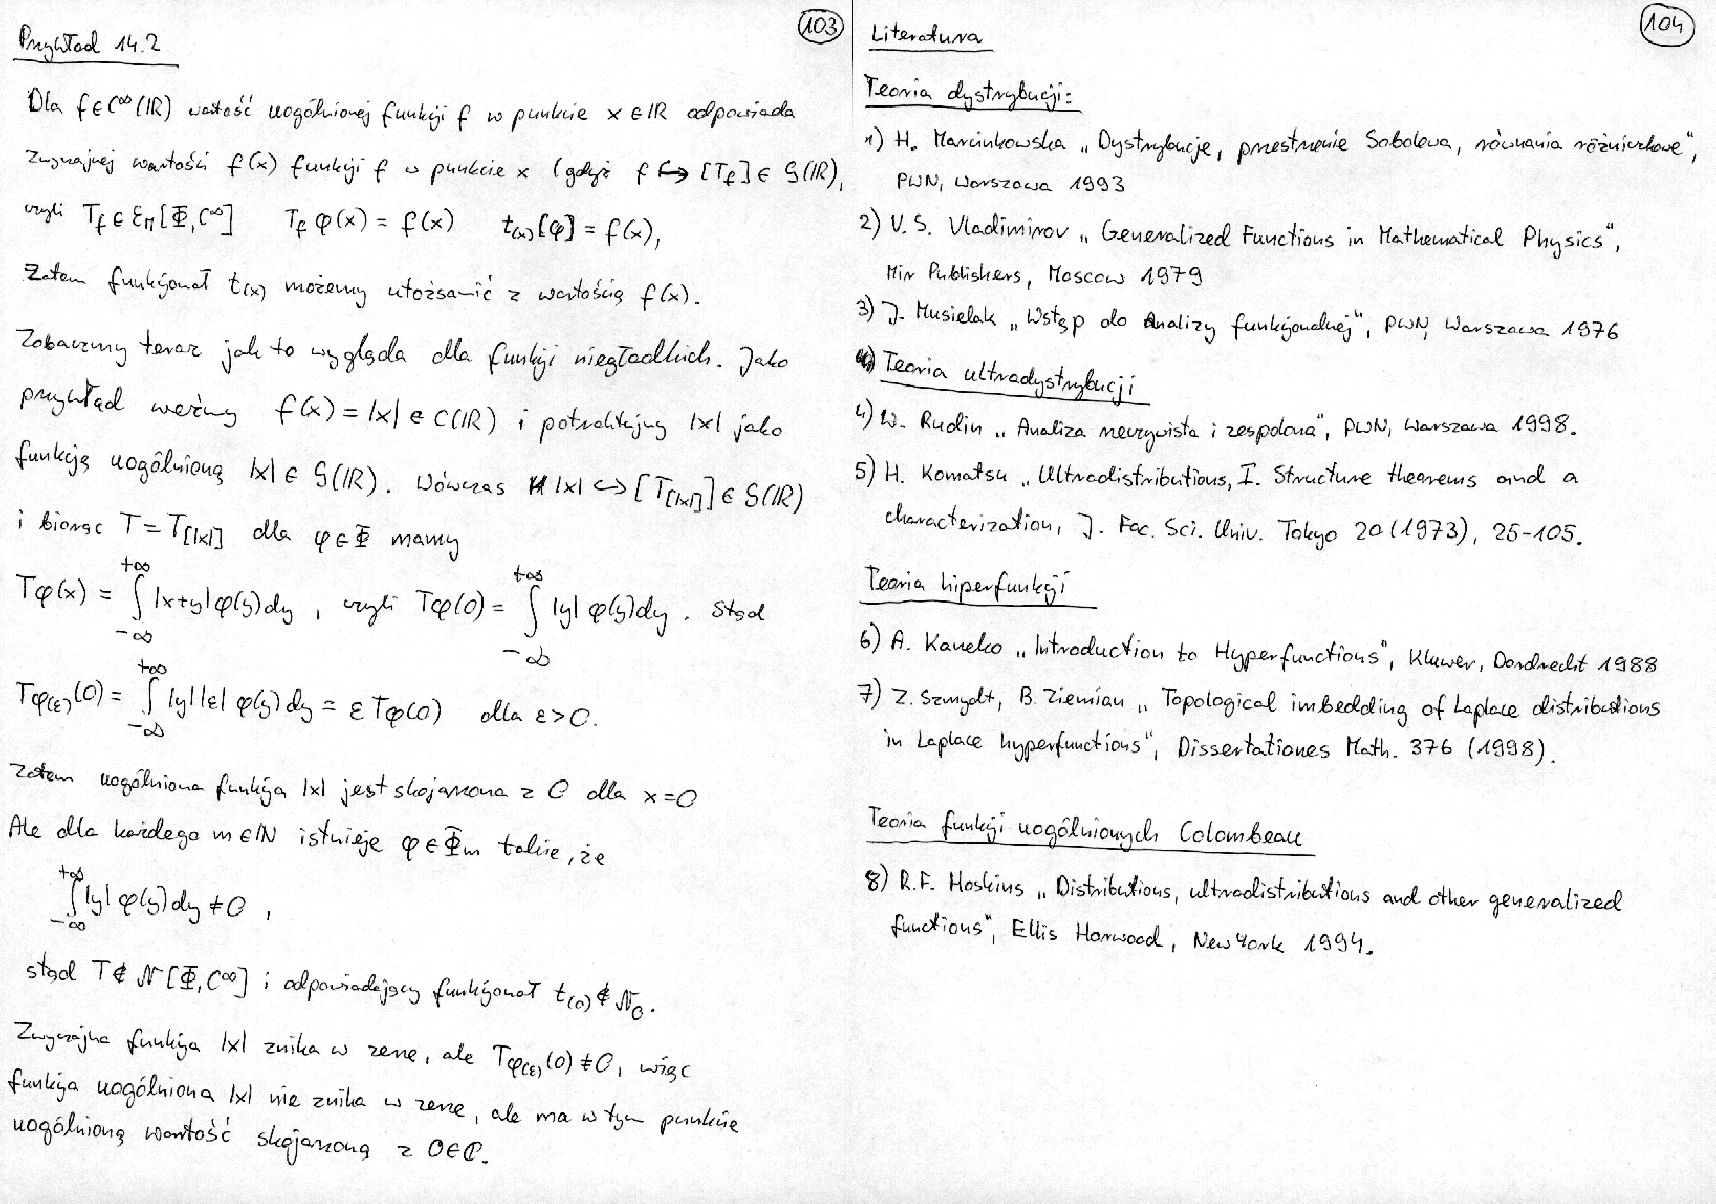 103
Przykład 14.2
Dla f∈C^∞(ℝ) wartość uogólnionej funkcji f w punkcie x∈ℝ odpowiada
zwyczajnej wartości f(x) funkcji f w punkcie x (gdyż f ↪ [T_f] ∈ 𝒢(ℝ),
czyli T_f ∈ ℰ_M[Φ, C^∞] T_f φ(x) = f(x) t_(x)[φ] = f(x),
Zatem funkcjonał t_(x) możemy utożsamić z wartością f(x).
Zobaczmy teraz jak to wygląda dla funkcji niegładkich. Jako
przykład weźmy f(x) = |x| ∈ C(ℝ) i potraktujmy |x| jako
funkcję uogólnioną |x| ∈ 𝒢(ℝ). Wówczas |x| ↪ [T_[|x|]] ∈ 𝒢(ℝ)
i biorąc T = T_[|x|] dla φ∈Φ mamy
Tφ(x) = ∫_{-∞}^{+∞} |x+y| φ(y) dy , czyli Tφ(0) = ∫_{-∞}^{+∞} |y| φ(y) dy . Stąd
Tφ_(ε)(0) = ∫_{-∞}^{+∞} |y||ε| φ(y) dy = ε Tφ(0) dla ε>0.
Zatem uogólniona funkcja |x| jest skojarzona z 0 dla x=0
Ale dla każdego m∈ℕ istnieje φ∈Φ_m takie, że
∫_{-∞}^{+∞} |y| φ(y) dy ≠ 0 ,
stąd T ∉ 𝒩[Φ, C^∞] i odpowiadający funkcjonał t_(0) ∉ 𝒩_0.
Zwyczajna funkcja |x| znika w zerze, ale Tφ_(ε)(0) ≠ 0, więc
funkcja uogólniona |x| nie znika w zerze, ale ma w tym punkcie
uogólnioną wartość skojarzoną z 0∈ℂ.
104
Literatura
Teoria dystrybucji:
1) H. Marcinkowska „Dystrybucje, przestrzenie Sobolewa, równania różniczkowe",
PWN, Warszawa 1993
2) V. S. Vladimirov „Generalized Functions in Mathematical Physics",
Mir Publishers, Moscow 1979
3) J. Musielak „Wstęp do Analizy funkcjonalnej", PWN, Warszawa 1976
Teoria ultradystrybucji
4) W. Rudin „Analiza rzeczywista i zespolona", PWN, Warszawa 1998.
5) H. Komatsu „Ultradistributions, I. Structure theorems and a
characterization, J. Fac. Sci. Univ. Tokyo 20 (1973), 25-105.
Teoria hiperfunkcji
6) A. Kaneko „Introduction to Hyperfunctions", Kluwer, Dordrecht 1988
7) Z. Szmydt, B. Ziemian „Topological imbedding of Laplace distributions
in Laplace hyperfunctions", Dissertationes Math. 376 (1998).
Teoria funkcji uogólnionych Colombeau
8) R.F. Hoskins „Distributions, ultradistributions and other generalized
functions", Ellis Horwood, New York 1994.